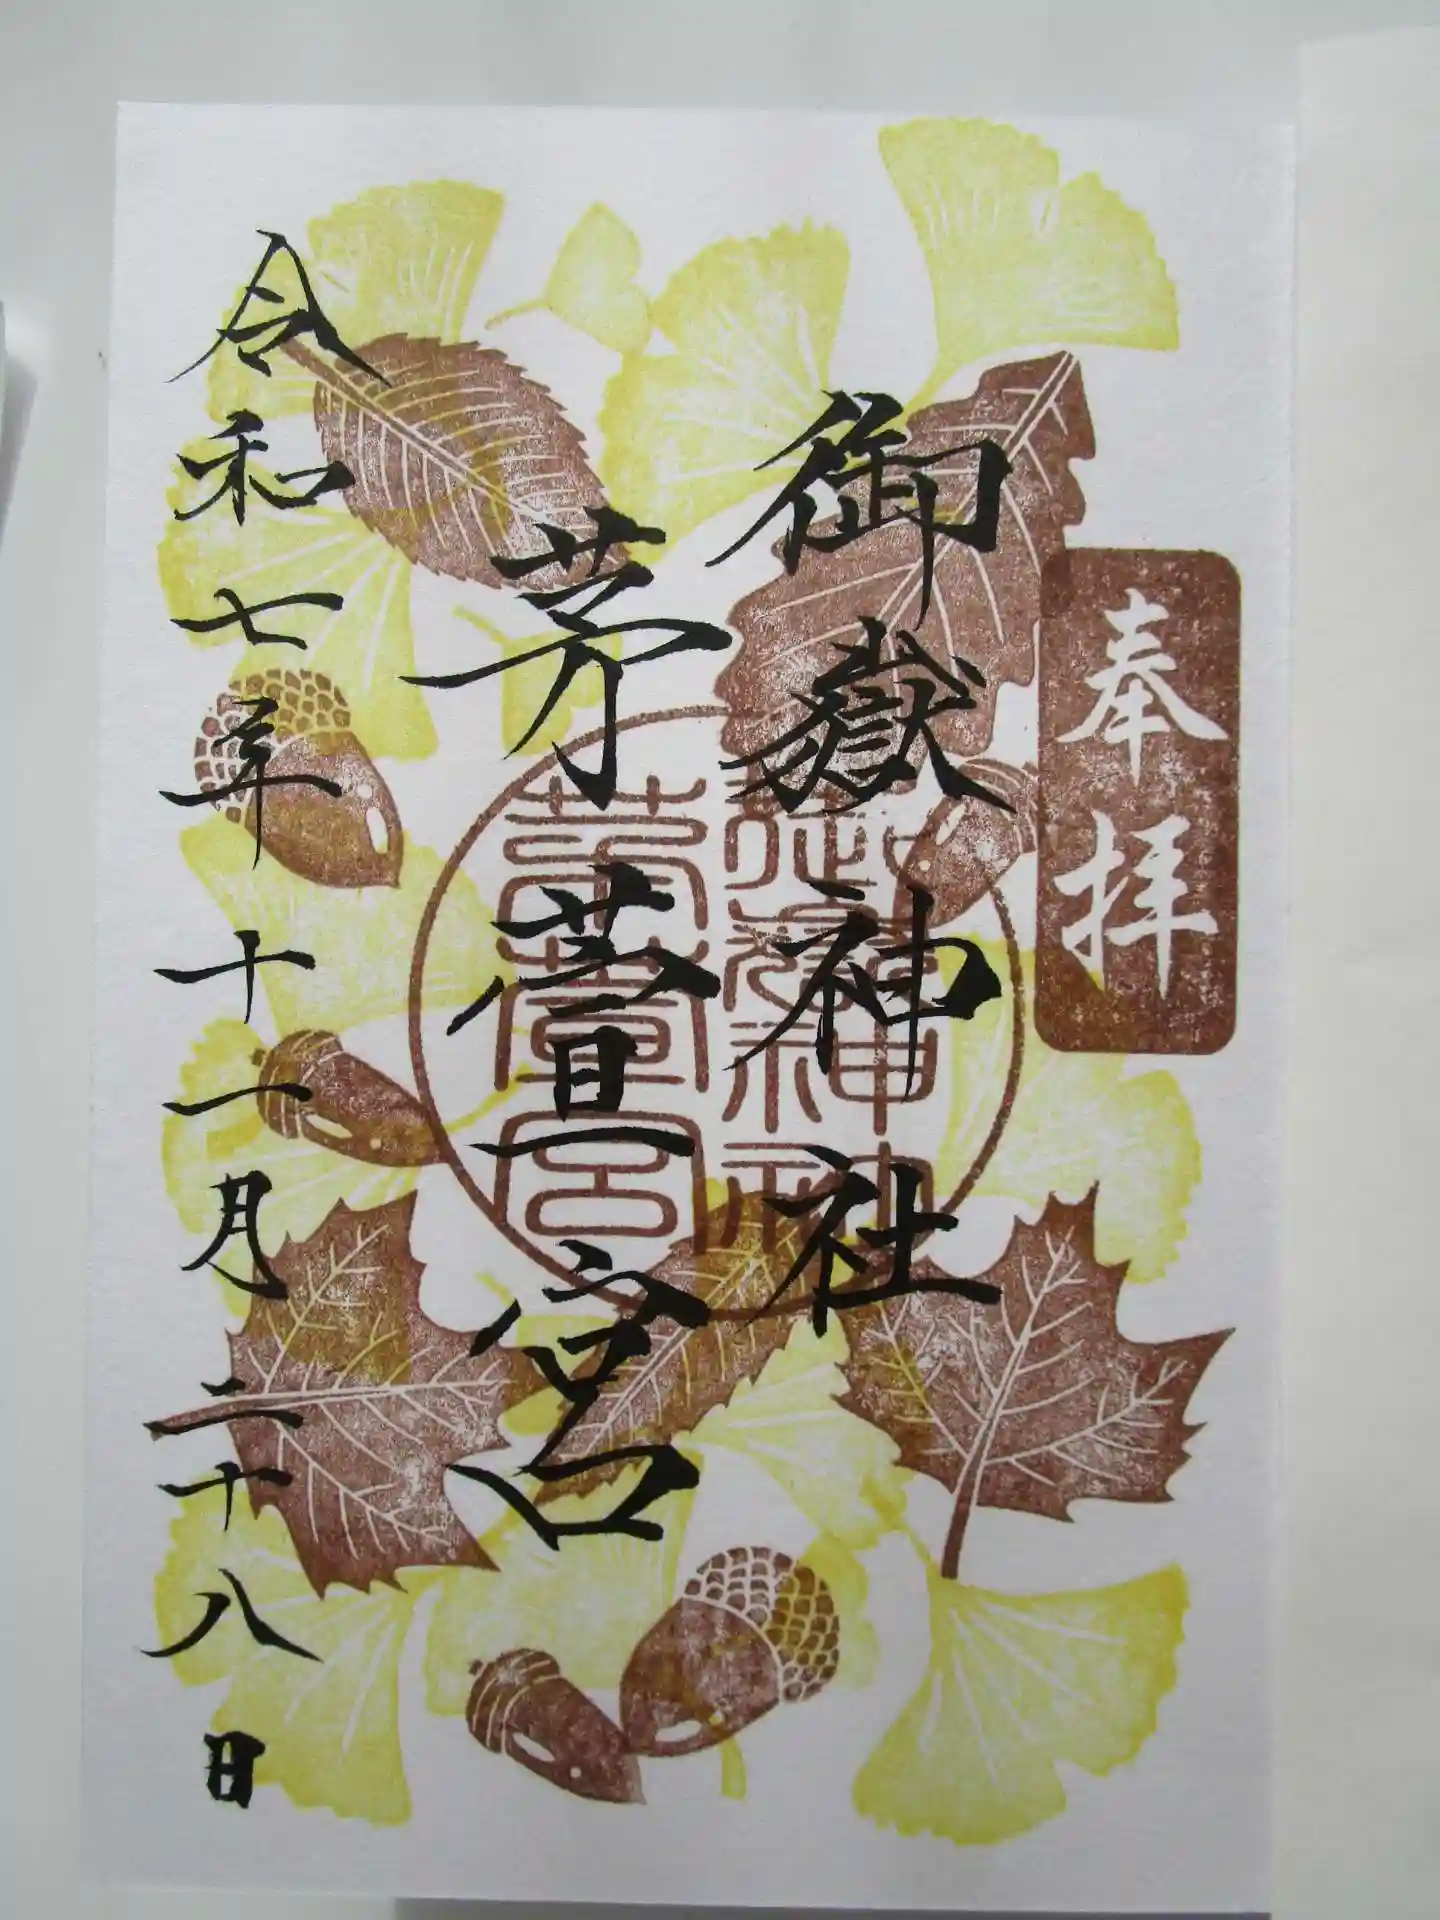 奉拝
御嶽神社
茅萱宮
御嶽神社
茅萱宮
令和七年十一月二十八日